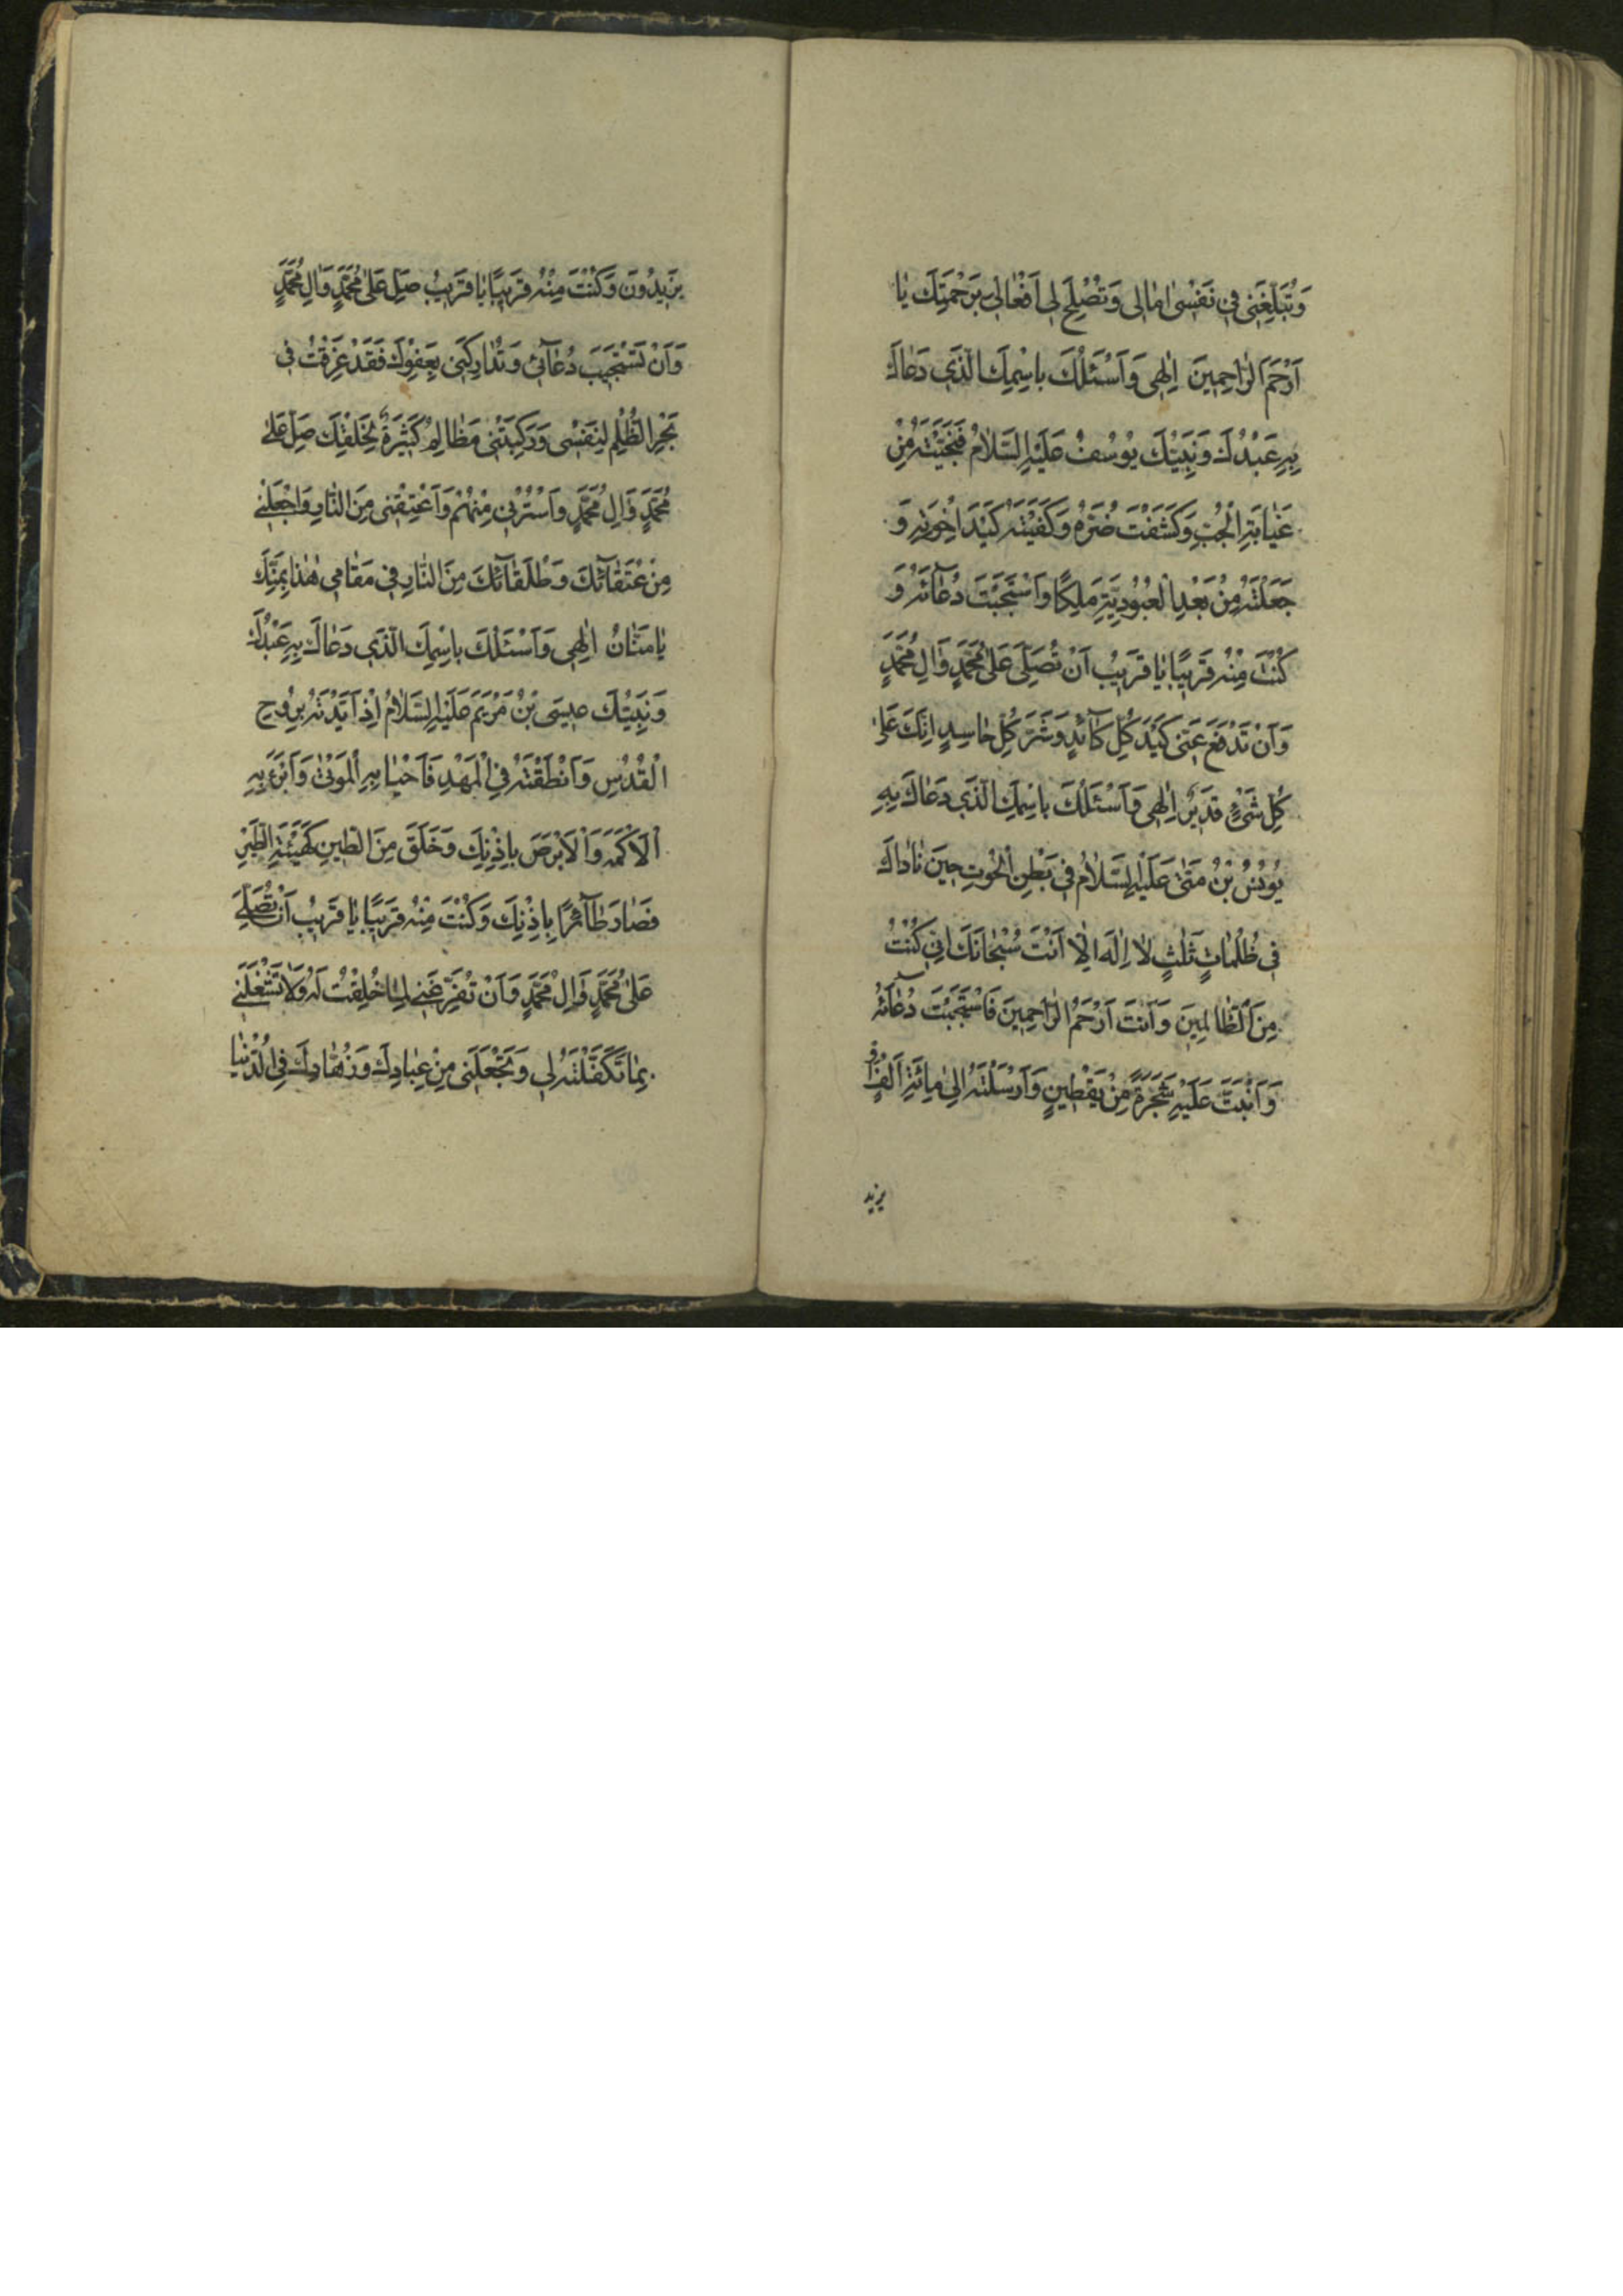 وَتُبَلِّغَنِي فِي نَفْسِي اٰمٰالِي وَتُصْلِحَ لِي اَفْعٰالِي بِرَحْمَتِكَ يٰا
اَرْحَمَ الرّٰاحِمِينَ اِلٰهِي وَاَسْئَلُكَ بِاسْمِكَ الَّذِي دَعٰاكَ
بِهِ عَبْدُكَ وَنَبِيُّكَ يُوسُفُ عَلَيْهِ السَّلٰامُ فَنَجَّيْتَهُ مِنْ
غَيٰابَةِ الْجُبِّ وَكَشَفْتَ ضُرَّهُ وَكَفَيْتَهُ كَيْدَ اِخْوَتِهِ وَ
جَعَلْتَهُ مِنْ بَعْدِ الْعُبُودِيَّةِ مَلِكًا وَاسْتَجَبْتَ دُعٰآئَهُ وَ
كُنْتَ مِنْهُ قَرِيبًا يٰا قَرِيبُ اَنْ تُصَلِّيَ عَلىٰ مُحَمَّدٍ وَاٰلِ مُحَمَّدٍ
وَاَنْ تَدْفَعَ عَنِّي كَيْدَ كُلِّ كٰآئِدٍ وَشَرَّ كُلِّ حٰاسِدٍ اِنَّكَ عَلىٰ
كُلِّ شَيْءٍ قَدِيرٌ اِلٰهِي وَاَسْئَلُكَ بِاسْمِكَ الَّذِي دَعٰاكَ بِهِ
يُونُسُ بْنُ مَتّىٰ عَلَيْهِ السَّلٰامُ فِي بَطْنِ الْحُوتِ حِينَ نٰادٰاكَ
فِي ظُلُمٰاتٍ ثَلٰثٍ لٰا اِلٰهَ اِلّٰا اَنْتَ سُبْحٰانَكَ اِنِّي كُنْتُ
مِنَ الظّٰالِمِينَ وَاَنْتَ اَرْحَمُ الرّٰاحِمِينَ فَاسْتَجَبْتَ دُعٰآئَهُ
وَاَنْبَتَّ عَلَيْهِ شَجَرَةً مِنْ يَقْطِينٍ وَاَرْسَلْتَهُ اِلىٰ مِائَةِ اَلْفٍ اَوْ
يزيد
يَزِيدُونَ وَكُنْتَ مِنْهُ قَرِيبًا يٰا قَرِيبُ صَلِّ عَلىٰ مُحَمَّدٍ وَاٰلِ مُحَمَّدٍ
وَاَنْ تَسْتَجِيبَ دُعٰآئِي وَتُدٰارِكَنِي بِعَفْوِكَ فَقَدْ غَرِقْتُ فِي
بَحْرِ الظُّلْمِ لِنَفْسِي وَرَكِبَتْنِي مَظٰالِمُ كَثِيرَةٌ لِخَلْقِكَ صَلِّ عَلىٰ
مُحَمَّدٍ وَاٰلِ مُحَمَّدٍ وَاسْتُرْنِي مِنْهُمْ وَاَعْتِقْنِي مِنَ النّٰارِ وَاجْعَلْنِي
مِنْ عُتَقٰآئِكَ وَطُلَقٰآئِكَ مِنَ النّٰارِ فِي مَقٰامِي هٰذٰا بِمَنِّكَ
يٰا مَنّٰانُ اِلٰهِي وَاَسْئَلُكَ بِاسْمِكَ الَّذِي دَعٰاكَ بِهِ عَبْدُكَ
وَنَبِيُّكَ عِيسَى بْنُ مَرْيَمَ عَلَيْهِ السَّلٰامُ اِذْ اَيَّدْتَهُ بِرُوحِ
الْقُدُسِ وَاَنْطَقْتَهُ فِي الْمَهْدِ فَاَحْيٰا بِهِ الْمَوْتىٰ وَاَبْرَءَ بِهِ
الْاَكْمَهَ وَالْاَبْرَصَ بِاِذْنِكَ وَخَلَقَ مِنَ الطِّينِ كَهَيْئَةِ الطَّيْرِ
فَصٰارَ طٰآئِرًا بِاِذْنِكَ وَكُنْتَ مِنْهُ قَرِيبًا يٰا قَرِيبُ اَنْ تُصَلِّيَ
عَلىٰ مُحَمَّدٍ وَاٰلِ مُحَمَّدٍ وَاَنْ تُفَرِّغَنِي لِمٰا خُلِقْتُ لَهُ وَلٰا تَشْغَلَنِي
بِمٰا تَكَفَّلْتَهُ لِي وَتَجْعَلَنِي مِنْ عِبٰادِكَ وَزُهّٰادِكَ فِي الدُّنْيٰا